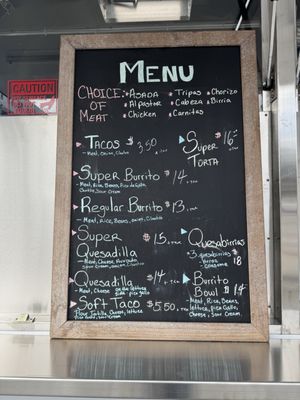 CHOOSE
CAUTION
MENU
CHOICE OF MEAT
Asada
Tripas
Chorizo
Al pastor
Cabeza
Birria
Chicken
Carnitas
TACOS $3.50
- Meat, Onion, Cilantro
Super Torta $16
Super Burrito $14 + TAX
- Meat, Rice, Beans, Pico de Gallo,
Sour Cream
Regular Burrito $13
- Meat, Rice, Beans, onion, Cilantro
Super Quesadilla $15
- Meat, Cheese,
Sour Cream
Quesabirrias
- 3 quesabirrias
consome $18
Quesadilla $14 + TAX
- Meat, Cheese
Burrito Bowl $14
- Meat, Rice, Beans
lettuce, Pico Gallo,
Cheese, Sour Cream
Soft Taco $5.50
Flour Tortilla, Meat, Cheese, lettuce